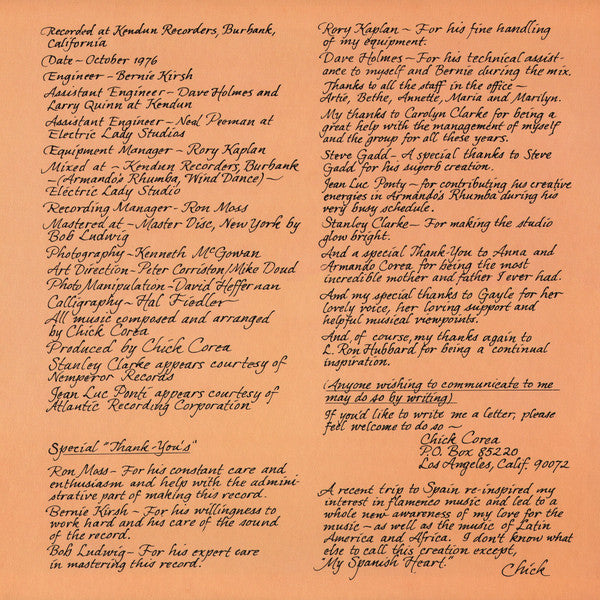 Recorded at Kendun Recorders, Burbank,
California
Date - October 1976
Engineer - Bernie Kirsh
Assistant Engineer - Dave Holmes and
Larry Quinn at Kendun
Assistant Engineer - Neal Peeman at
Electric Lady Studios
Equipment Manager - Rory Kaplan
Mixed at - Kendun Recorders, Burbank
- (Armando's Rhumba, Wind Dance) -
Electric Lady Studio
Recording Manager - Ron Moss
Mastered at - Master Disc, New York by
Bob Ludwig
Photography - Kenneth McGowan
Art Direction - Peter Corriston/Mike Doud
Photo Manipulation - David Heffernan
Calligraphy - Hal Fiedler -
All music composed and arranged
by Chick Corea
Produced by Chick Corea
Stanley Clarke appears courtesy of
Nemperor Records
Jean Luc Ponti appears courtesy of
Atlantic Recording Corporation
Special "Thank-You's"
Ron Moss - For his constant care and
enthusiasm and help with the admini-
strative part of making this record.
Bernie Kirsh - For his willingness to
work hard and his care of the sound
of the record.
Bob Ludwig - For his expert care
in mastering this record.
Rory Kaplan - For his fine handling
of my equipment.
Dave Holmes - For his technical assist-
ance to myself and Bernie during the mix.
Thanks to all the staff in the office -
Artie, Bethe, Annette, Maria and Marilyn.
My thanks to Carolyn Clarke for being a
great help with the management of myself
and the group for all these years.
Steve Gadd - A special thanks to Steve
Gadd for his superb creation.
Jean Luc Ponty - for contributing his creative
energies in Armando's Rhumba during his
very busy schedule.
Stanley Clarke - For making the studio
glow bright.
And a special Thank-You to Anna and
Armando Corea for being the most
incredible mother and father I ever had.
And my special thanks to Gayle for her
lovely voice, her loving support and
helpful musical viewpoints.
And, of course, my thanks again to
L. Ron Hubbard for being a continual
inspiration.
(Anyone wishing to communicate to me
may do so by writing)
If you'd like to write me a letter, please
feel welcome to do so -
Chick Corea
P.O. Box 85220
Los Angeles, Calif. 90072
A recent trip to Spain re-inspired my
interest in flamenco music and led to a
whole new awareness of my love for the
music - as well as the music of Latin
America and Africa. I don't know what
else to call this creation except,
"My Spanish Heart."
Chick